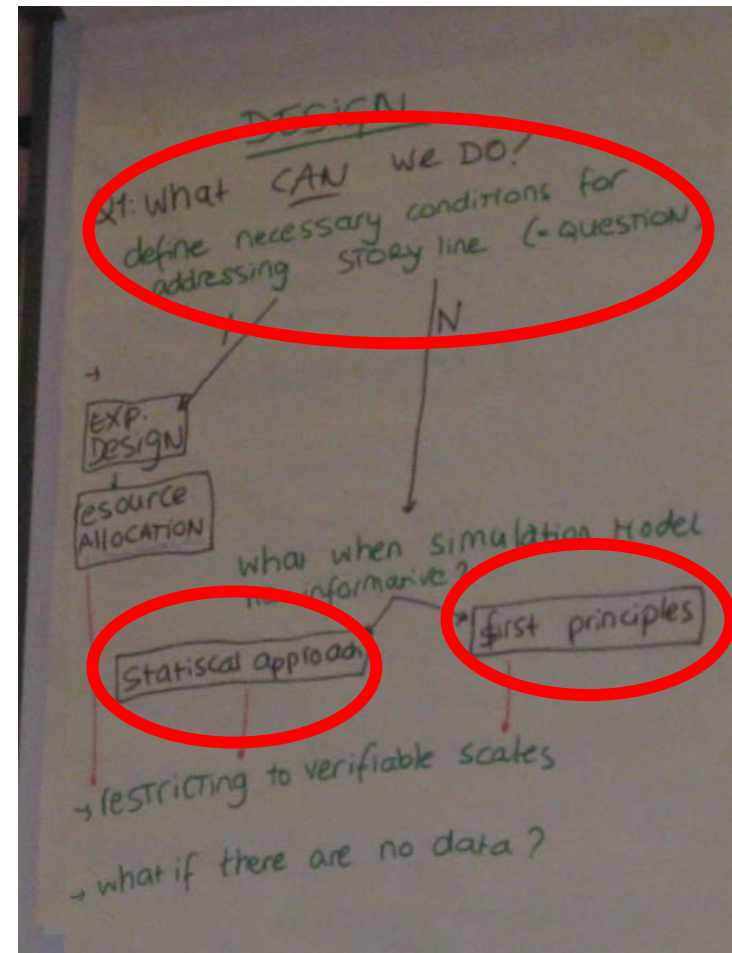 DESIGN
Q1: What CAN we DO?
define necessary conditions for
addressing STORY line (= QUESTION)
Y
N
→
EXP.
DESIGN
esource
AllOCATION
What when simulation Model
informative?
Statiscal approach
first principles
→ resTricTing to verifiable scales
→ what if there are no data?